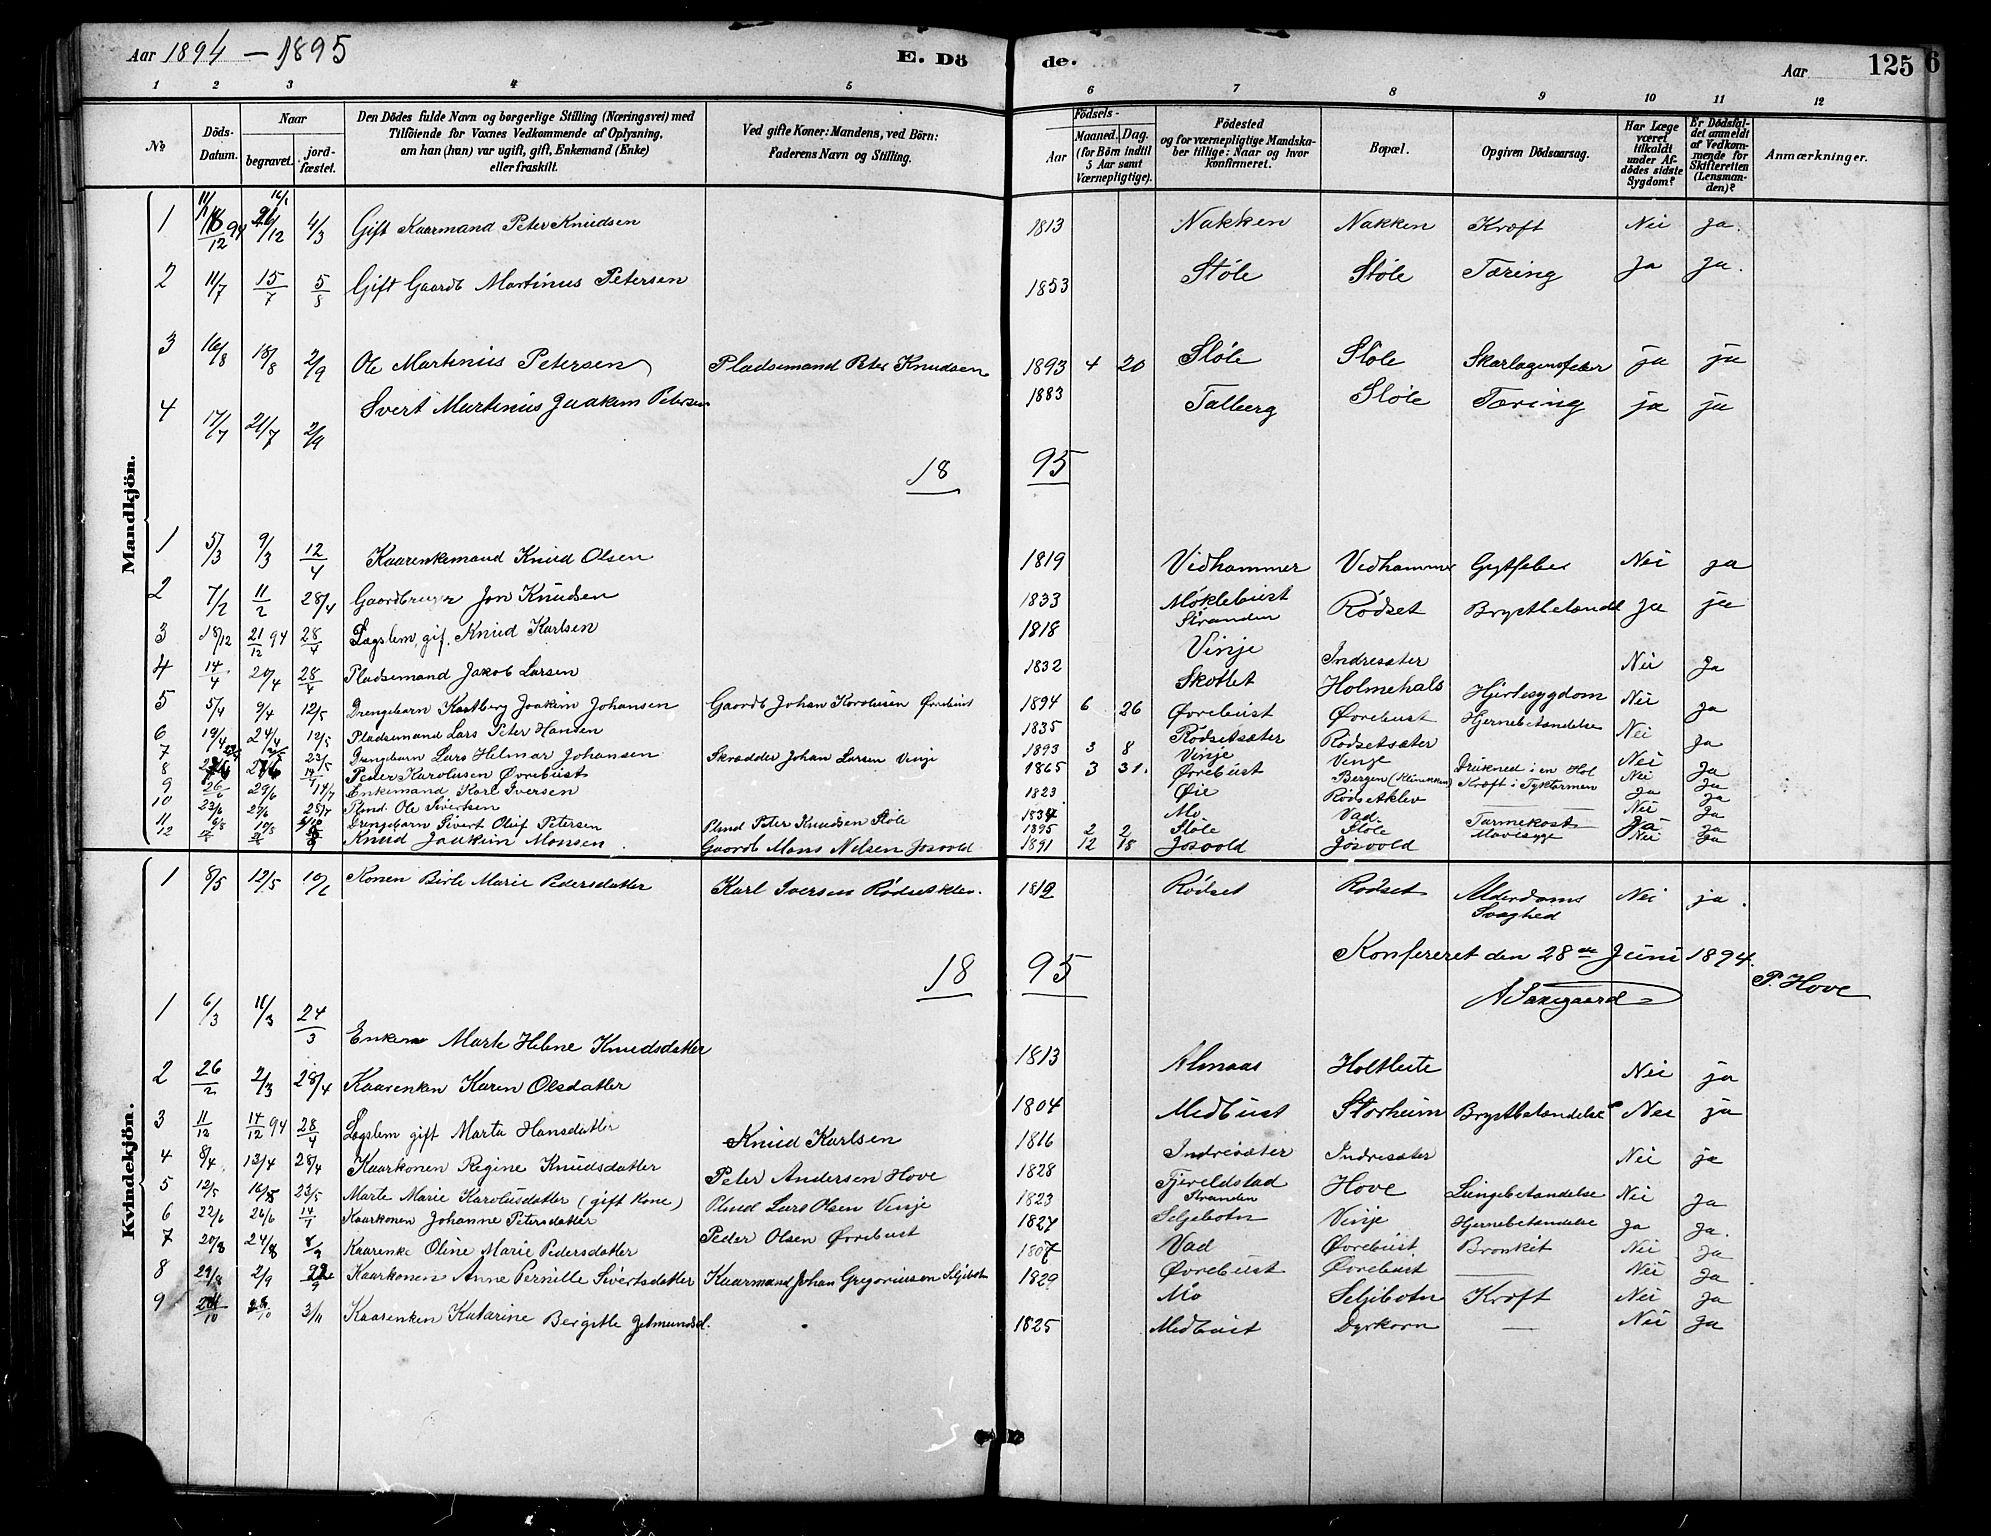 Aar 1894 — 1895
E. Dö
de.
Aar
125
6
1 2 3 4 5 6 7 8 9 10 11 12
No
Döds-Datum.
Naar
begravet. jordfæstet.
Den Dödes fulde Navn og borgerlige Stilling (Næringsvei) med
Tilföiende for Voxnes Vedkommende af Oplysning,
om han (hun) var ugift, gift, Enkemand (Enke)
eller fraskilt.
Ved gifte Koner: Mandens, ved Börn:
Faderens Navn og Stilling.
Födsels-
Aar Maaned. Dag.
(for Börn indtil
5 Aar samt
Værnepligtige).
Födested
og for værnepligtige Mandska-
ber tillige: Naar og hvor
konfirmeret.
Bopæl.
Opgiven Dödsaarsag.
Har Læge
været
tilkaldt
under Af-
dödes sidste
Sygdom?
Er Dödsfal-
det anmeldt
af Vedkom-
mende for
Skifteretten
(Lensman-
den)?
Anmærkninger.
Mandkjön.
1 4/3 Gift Kaarmand Peter Knudsen 1813 Nakken Nakken Kræft Nei Ja.
2 11/7 15/7 5/8 Gift Gaardb Martinus Petersen 1853 Støle Støle Tæring Ja Ja.
3 16/8 18/8 2/9 Ole Martinus Petersen Pladsemand Peter Knudsen 1893 4 20 Støle Støle Skarlagensfeber ja ja
4 17/7 21/7 2/9 Sivert Martinus Joakim Petersen 1883 Talberg Støle Tæring ja ja
18 95
1 5/3 9/3 12/4 Kaarenkemand Knud Olsen 1819 Vidhammer Vedhammer Gigtfeber Nei ja
2 7/2 11/2 28/4 Gaardbruger Jon Knudsen 1833 Møklebust Rødset Brystbetændel Ja ja
Stranden
3 18/12 21/12 94 28/4 Lægslem, gif. Knud Karlsen 1818 Vinje Indresæter Nei Ja
4 14/4 20/4 28/4 Pladsemand Jakob Larsen 1832 Skottet Holmehals Hjertesygdom Nei Ja
5 5/4 9/4 12/5 Drengebarn Kastberg Joakim Johansen Gaardb Johan Karolusen Øvrebust 1894 6 26 Øvrebust Øvrebust Hjernebetændelse Nei Ja
6 19/4 24/4 12/5 Pladsemand Lars Peter Hansen 1835 Rødsetsæter Rødsetsæter
7 23/5 Drengebarn Lars Helmar Johansen Skrædder Johan Larsen Vinje 1893 3 8 Vinje Vinje Drukned i en Høl Nei Ja
8 14/7 Peder Karolusen Øvrebust 1865 3 31. Øvrebust Bergen Kræft i Tyktarmen Nei Ja
9 26/6 29/6 14/7 Enkemand Karl Iversen 1823 Øie Rødsetklev Ja Ja
10 23/6 27/6 28/7 Plmd. Ole Sivertsen 1834 Mo Vad. Nei Ja
11 6/8 10/8 Drengebarn Sivert Oluf Petersen Plmd Peter Knudsen Støle 1895 2 2 Støle Støle Tarmekost Ja Ja
12 Knud Joakim Monsen Gaardb Mons Nilsen Jøsvold 1891 12 18 Jøsvold Jøsvold Mavesyge Nei Ja
Kvindekjön.
1 8/5 12/5 10/6 Konen Birte Marie Pedersdatter Karl Iversen Rødsetklev. 1812 Rødset Rødset Alderdoms Nei ja.
Svaghed
Konfereret den 28de Juni 1894.
18 95
P. Hove
1 6/3 11/3 24/3 Enken Marte Helene Knudsdatter 1813 Almaas Holtleite Nei ja
2 26/2 2/3 28/4 Kaarenken Karen Olsdatter 1804 Medbust Storheim Brystbetændelse Nei ja
3 11/12 14/12 94 28/4 Lægslem gift Marta Hansdatter Knud Karlsen 1816 Indresæter Indresæter Nei ja
4 8/4 13/4 28/4 Kaarkonen Regine Knudsdatter Peter Andersen Hove 1828 Fjeveldstad Hove Lungebetændelse Nei Ja
Stranden
5 12/5 16/5 23/5 Marte Marie Karolusdatter (gift Kone) Plmd Lars Olsen Vinje 1823 Seljebotn Vinje Hjernebetændelse Ja Ja.
6 22/6 26/6 Kaarkonen Johanne Petersdatter Peder Olsen Øvrebust 1827 Vad Øvrebust Bronkit Nei Ja
7 20/8 24/8 Kaarenke Oline Marie Pedersdatter 1807 Øvrebust Øvrebust — Nei Ja
8 29/8 2/9 Kaarkonen Anne Pernille Sivertsdatter Kaarmand Johan Gregoriusen Seljebotn 1829 Mo Seljebotn Kræft Nei Ja
9 3/11 Kaarenken Katarine Bergitte Jetmundsd. 1825 Medbust Dyrkorn — Nei Ja